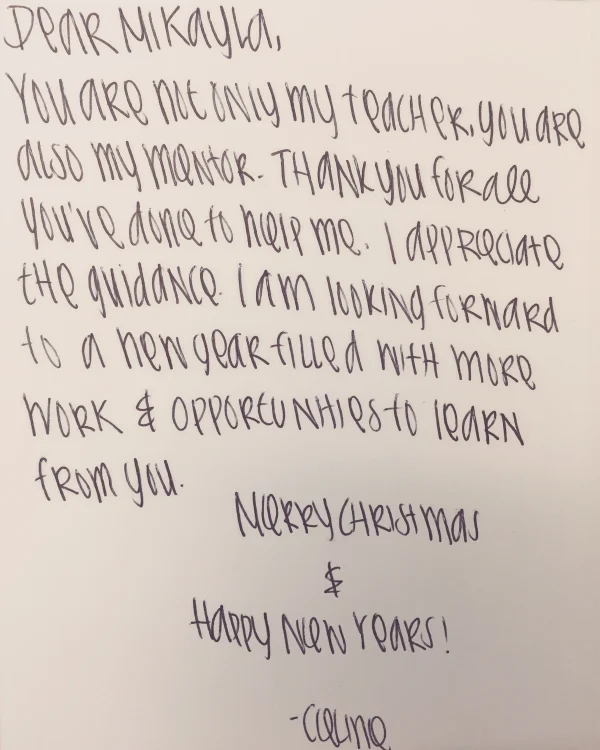 Dear Mikayla,
You are not only my teacher, you are
also my mentor. Thank you for all
you've done to help me. I appreciate
the guidance. I am looking forward
to a new year filled with more
work & opportunities to learn
from you.
Merry Christmas
&
Happy New Years!
-Celine